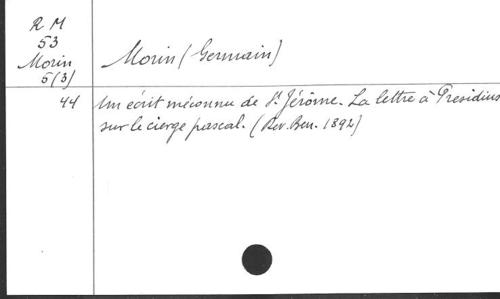 R M
53
Morin
5(3)
Morin (Germain)
44
Un écrit méconnu de St Jérôme. La lettre à Presidius
sur le cierge pascal. (Rev. Ben. 1892)